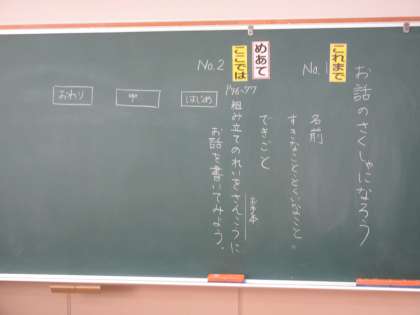 お話のさくしゃになろう
これまで
No.1
名前
すきなこと、とくいなこと。
めあて
ここでは
No.2
できごと
P76~77
組み立てのれいをさんこうに
お手本
お話を書いてみよう。
はじめ
中
おわり